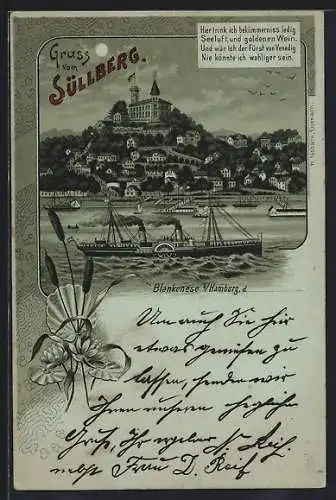 Gruss
vom
SÜLLBERG.
Hier trink ich bekümmerniss ledig
Seeluft, und goldenen Wein.
Und wär ich der Fürst von Venedig
Nie könnte ich wohliger sein.
Blankenese b/Hamburg, d.
Um auch Sie hier
etwas geniessen zu
lassen, senden wir
Ihnen unseren herzlichen
Gruß, Ihr ergebener Reif
nebst Frau D. Reif